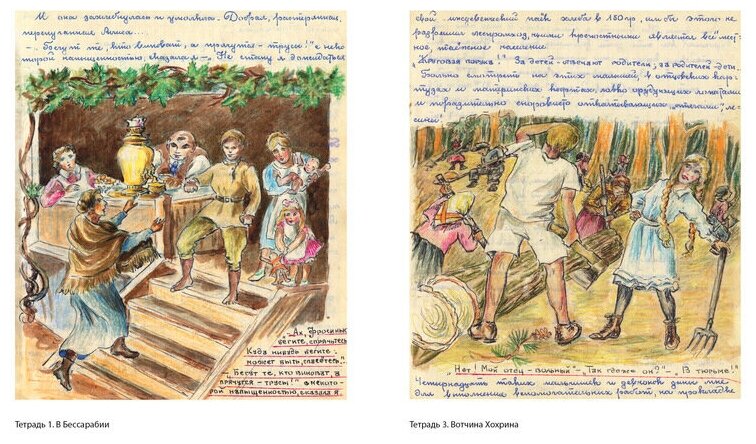 И она захлебнулась и умолкла. Добрая, растерянная,
перепуганная Алиса...
-„Бегут те, кто виноват, а прячутся - трусы!" с неко-
торой напыщенностью сказала я. - Не стану я дожидаться
„Ах, Фросинька
бегите, спрячьтесь
Куда нибудь бегите -
может быть, спасётесь."
- „Бегут те, кто виноват, а
прячутся - трусы!" с некото-
рой напыщенностью, сказала я.
Тетрадь 1. В Бессарабии
свой иждивенческий паёк хлеба в 150 гр, или бы этого не
разрешил леспромхоз, чьими крепостными является всё мест-
ное, таёжное население.
„Круговая порука!" За детей - отвечают родители; за родителей - дети.
Больно смотреть на этих малышей, в отцовских кар-
тузах и материнских кофтах, ловко орудующих лопатами
и поразительно сноровисто откатывающих ле-
сины!
„Нет! Мой отец - вольный" - „Так где же он?" - „В тюрьме!"
Четырнадцать таких мальчишек и девчонок дали мне
для выполнения вспомогательных работ, на
Тетрадь 3. Вотчина Хохрина